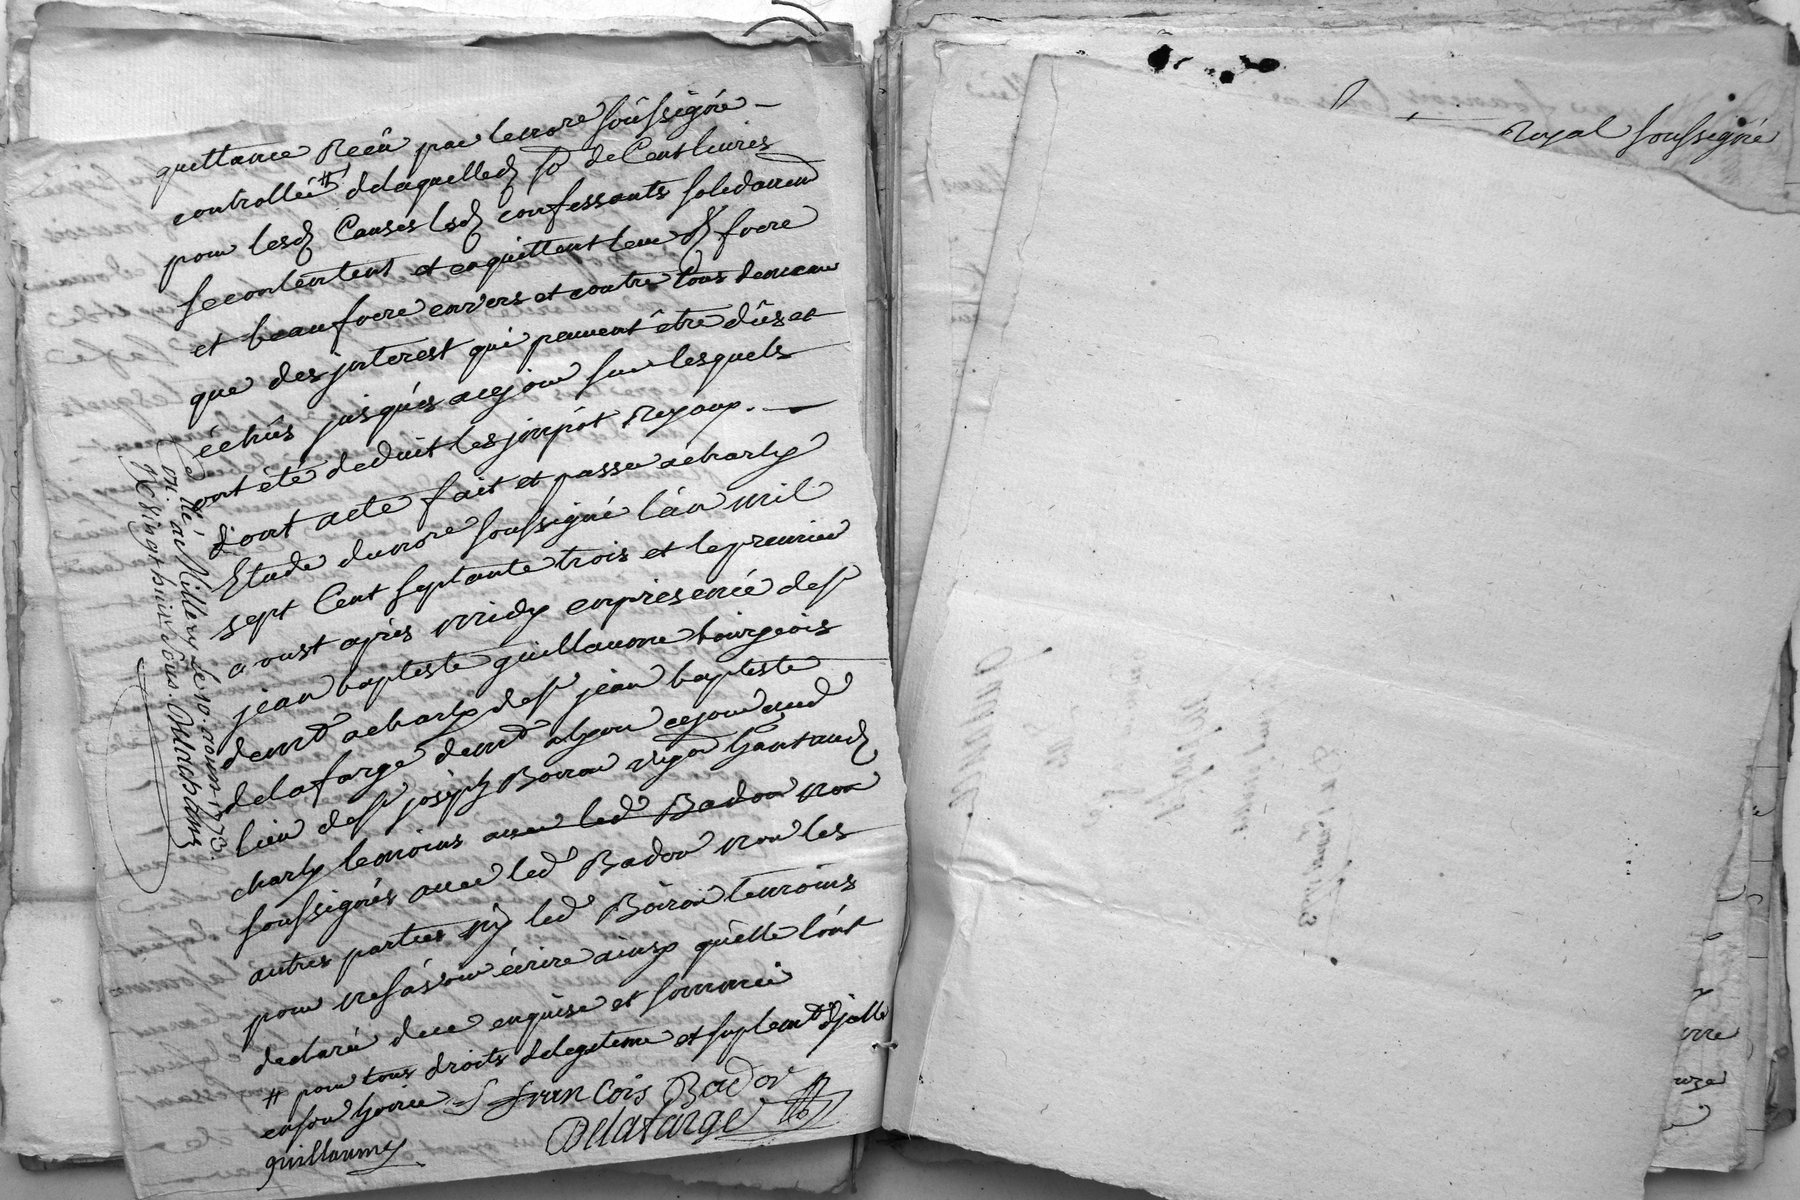 quittance Reçu par le nore soussigné
controllée # de laquelle d somme de Cent livres
pour lesd Causes lesd confessants solidairem
se contentent et en quittent leur d frere
et beaufrere envers et contre tous dememe
que des jnterest qui peuvent être dûs et
échus jusqués a cejour sur lesquels
ont été deduit les jmpót Royaux.
dont acte fait et passé a charly
Etude dunore soussigné l'án mil
sept Cent septante trois et le premier
aoust aprés midy en présence de sr
jean baptiste guillaume bourgeois
demt a charly de sr jean baptiste
delafarge demt a lyon cejour aud
lieu de sr joseph Boiron vigon habitand
charly temoins avec led Badou non
soussignés avec led Badou non les
autres parties ny led Boiron temoins
pour ne sávoir écrire ainsy qu'elle lont
declaré de ce enquise et sommée
# pour tous droits de legitime et suplemt d'jcelle
en son hoirie François Badou
Delafarge
guillaume
Con. lé à Millery le 10. aoust 1773.
R vingt huit sous.
Royal soussigné